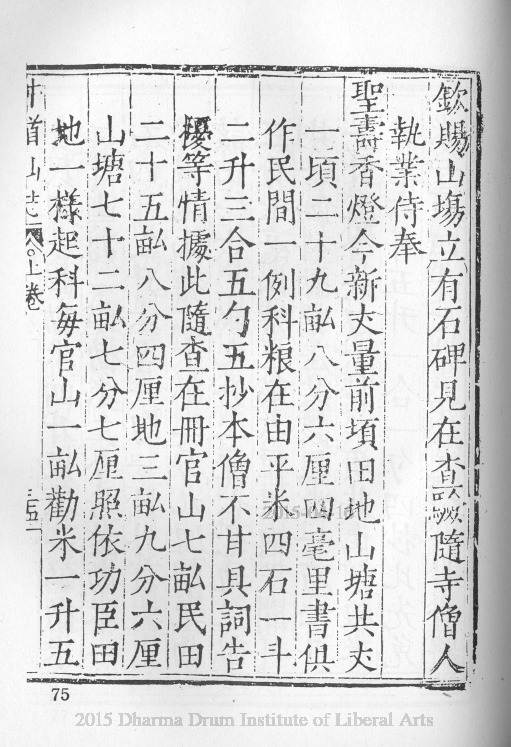 欽賜山塲立有石碑見在查驗隨寺僧人
執業侍奉
聖壽香燈今新丈量前項田地山塘共丈
一頃二十九畝八分六厘四毫里書俱
作民間一例科粮在由平米四石一斗
二升三合五勺五抄本僧不甘具詞告
擾等情據此隨查在冊官山七畝民田
二十五畝八分四厘地三畝九分六厘
山塘七十二畝七分七厘照依功臣田
地一樣起科每官山一畝勸米一升五
山志 上卷
75
2015 Dharma Drum Institute of Liberal Arts